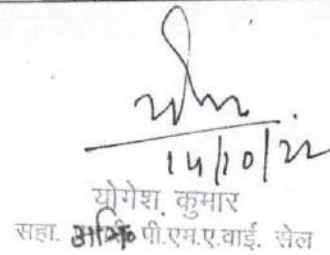 14/10/22
योगेश कुमार
सहा. अभि० पी.एम.ए.वाई. सेल